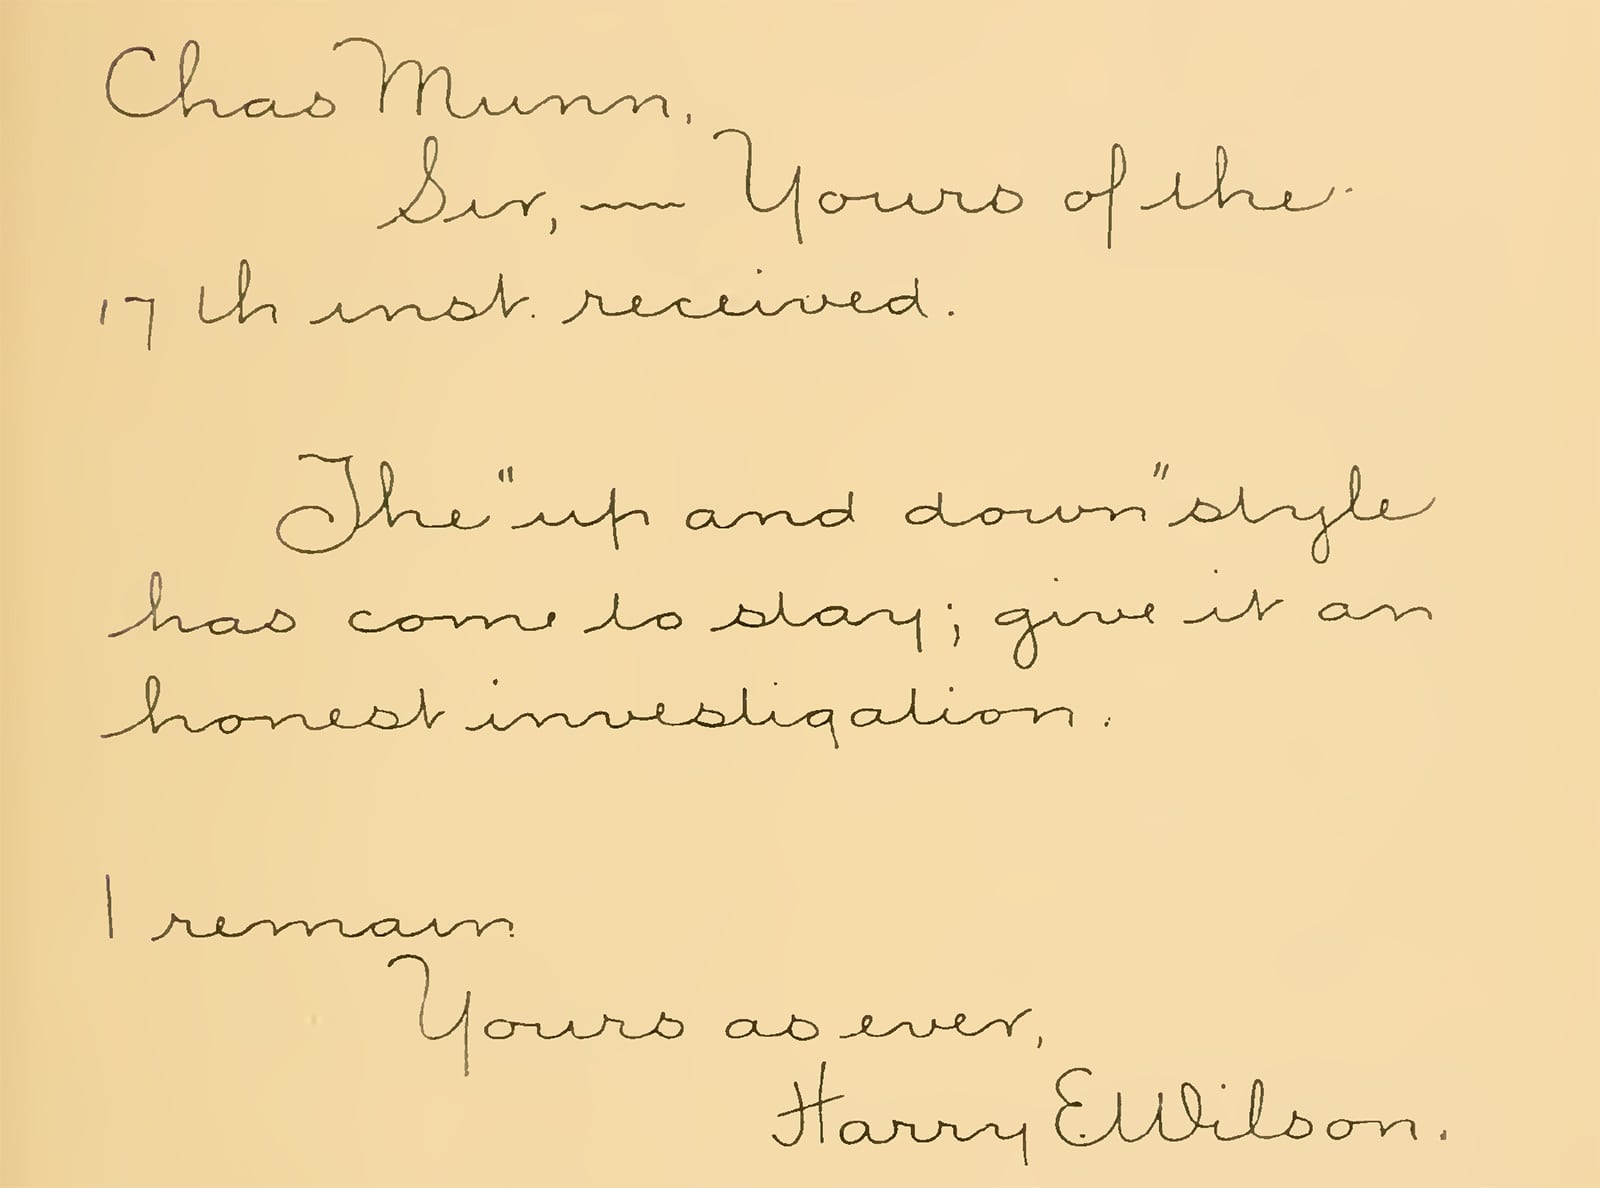 Chas Munn,
Sir, — Yours of the
17th inst. received.
The "up and down" style
has come to stay; give it an
honest investigation.
I remain
Yours as ever,
Harry E. Wilson.